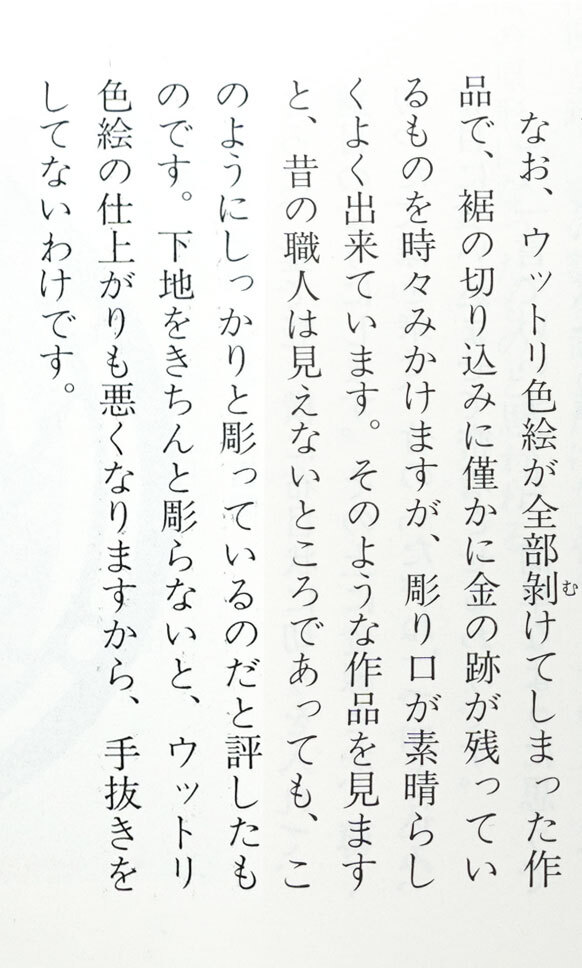 なお、ウットリ色絵が全部剝けてしまった作
品で、裾の切り込みに僅かに金の跡が残ってい
るものを時々みかけますが、彫り口が素晴らし
くよく出来ています。そのような作品を見ます
と、昔の職人は見えないところであっても、こ
のようにしっかりと彫っているのだと評したも
のです。下地をきちんと彫らないと、ウットリ
色絵の仕上がりも悪くなりますから、手抜きを
してないわけです。
む